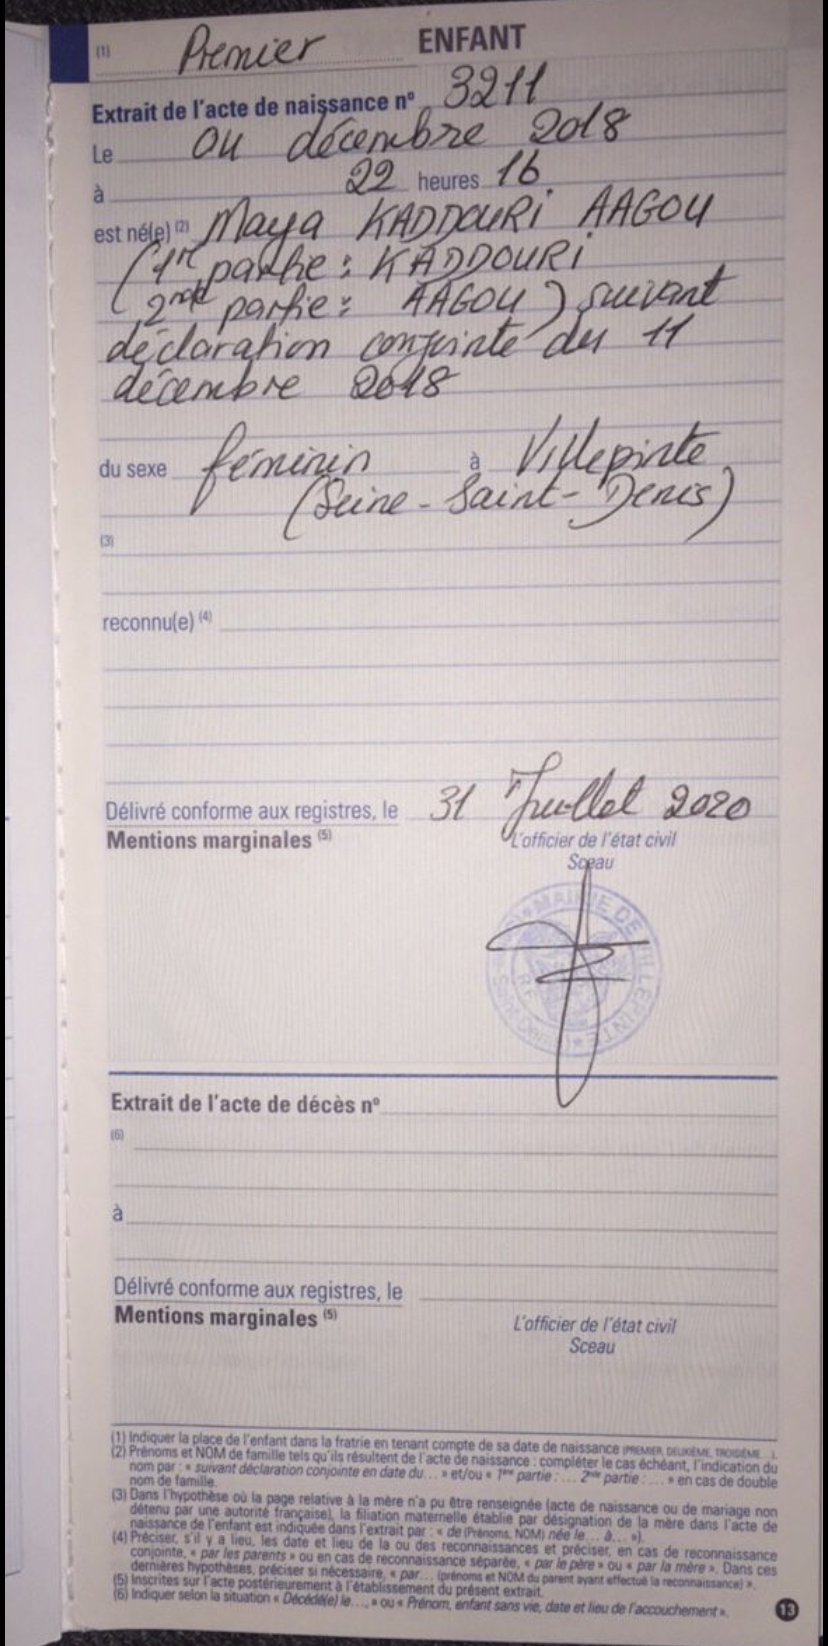 (1) Premier ENFANT
Extrait de l'acte de naissance n° 3211
Le 04 décembre 2018
à 22 heures 16
est né(e) (2) Maya KADDOURI AAGOU
(1re partie : KADDOURI
2nde partie : AAGOU) suivant
déclaration conjointe du 11
décembre 2018
du sexe féminin à Villepinte
(Seine-Saint-Denis)
(3)
reconnu(e) (4)
Délivré conforme aux registres, le 31 Juillet 2020
Mentions marginales (5) L'officier de l'état civil
Sceau
MAIRIE DE VILLEPINTE
R.F.
Extrait de l'acte de décès n°
(6)
à
Délivré conforme aux registres, le
Mentions marginales (5) L'officier de l'état civil
Sceau
(1) Indiquer la place de l'enfant dans la fratrie en tenant compte de sa date de naissance (PREMIER, DEUXIÈME, TROISIÈME ...).
(2) Prénoms et NOM de famille tels qu'ils résultent de l'acte de naissance : compléter le cas échéant, l'indication du
nom par : « suivant déclaration conjointe en date du... » et/ou « 1ère partie : ... 2nde partie : .... » en cas de double
nom de famille.
(3) Dans l'hypothèse où la page relative à la mère n'a pu être renseignée (acte de naissance ou de mariage non
détenu par une autorité française), la filiation maternelle établie par désignation de la mère dans l'acte de
naissance de l'enfant est indiquée dans l'extrait par : « de (Prénoms, NOM) née le... à... »).
(4) Préciser, s'il y a lieu, les date et lieu de la ou des reconnaissances et préciser, en cas de reconnaissance
conjointe, « par les parents » ou en cas de reconnaissance séparée, « par le père » ou « par la mère ». Dans ces
dernières hypothèses, préciser si nécessaire, « par... (prénoms et NOM du parent ayant effectué la reconnaissance) ».
(5) Inscrites sur l'acte postérieurement à l'établissement du présent extrait.
(6) Indiquer selon la situation « Décédé(e) le..., » ou « Prénom, enfant sans vie, date et lieu de l'accouchement ».
13